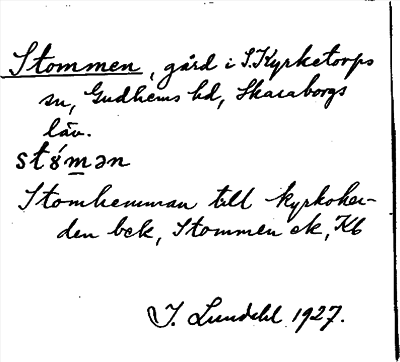 Stommen, gård i S. Kyrketorps
sn, Gudhems hd, Skaraborgs
län.
stǿmən
Stomhemman till kyrkoher-
den bck, Stommen ek, Kb
I. Lundahl 1927.